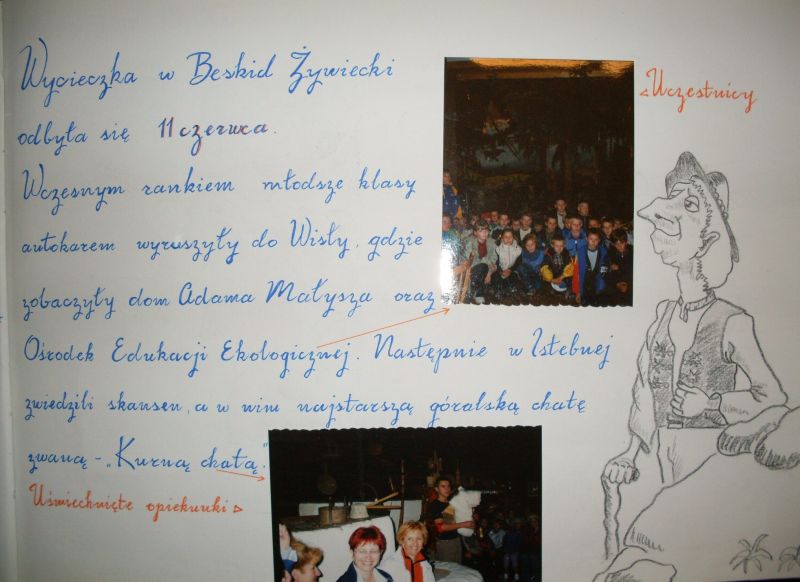 Wycieczka w Beskid Żywiecki
◃Uczestnicy
odbyła się 11 czerwca.
Wczesnym rankiem młodsze klasy
autokarem wyruszyły do Wisły, gdzie
zobaczyły dom Adama Małysza oraz
Ośrodek Edukacji Ekologicznej. Następnie w Istebnej
zwiedzili skansen, a w nim najstarszą góralską chatę
zwaną - „Kurną chatą."
Uśmiechnięte opiekunki ▹